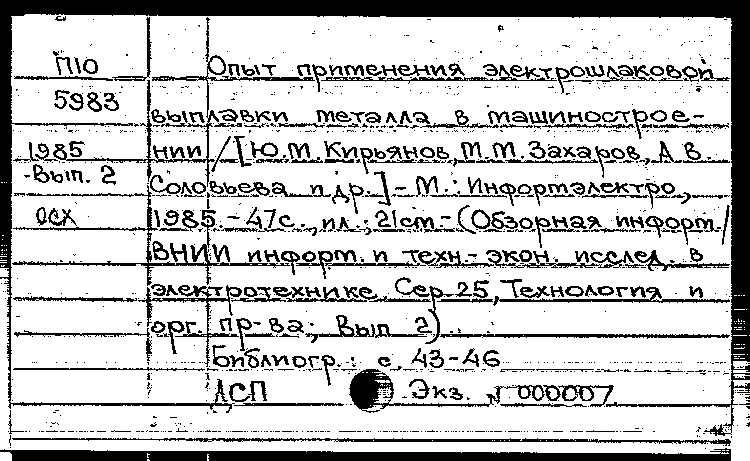 П10
5983
1985
-Вып. 2
ОСХ
Опыт применения электрошлаковой
выплавки металла в машинострое-
нии /[Ю.М. Кирьянов, М.М. Захаров, А В.
Соловьева и др.] - М.: Информэлектро,
1985. - 47с., ил.; 21см - (Обзорная информ./
ВНИИ информ. и техн.- экон. исслед. в
электротехнике. Сер 25, Технология и
орг. пр-ва; Вып 2).
Библиогр.: с. 43-46
ДСП Экз. № 000007